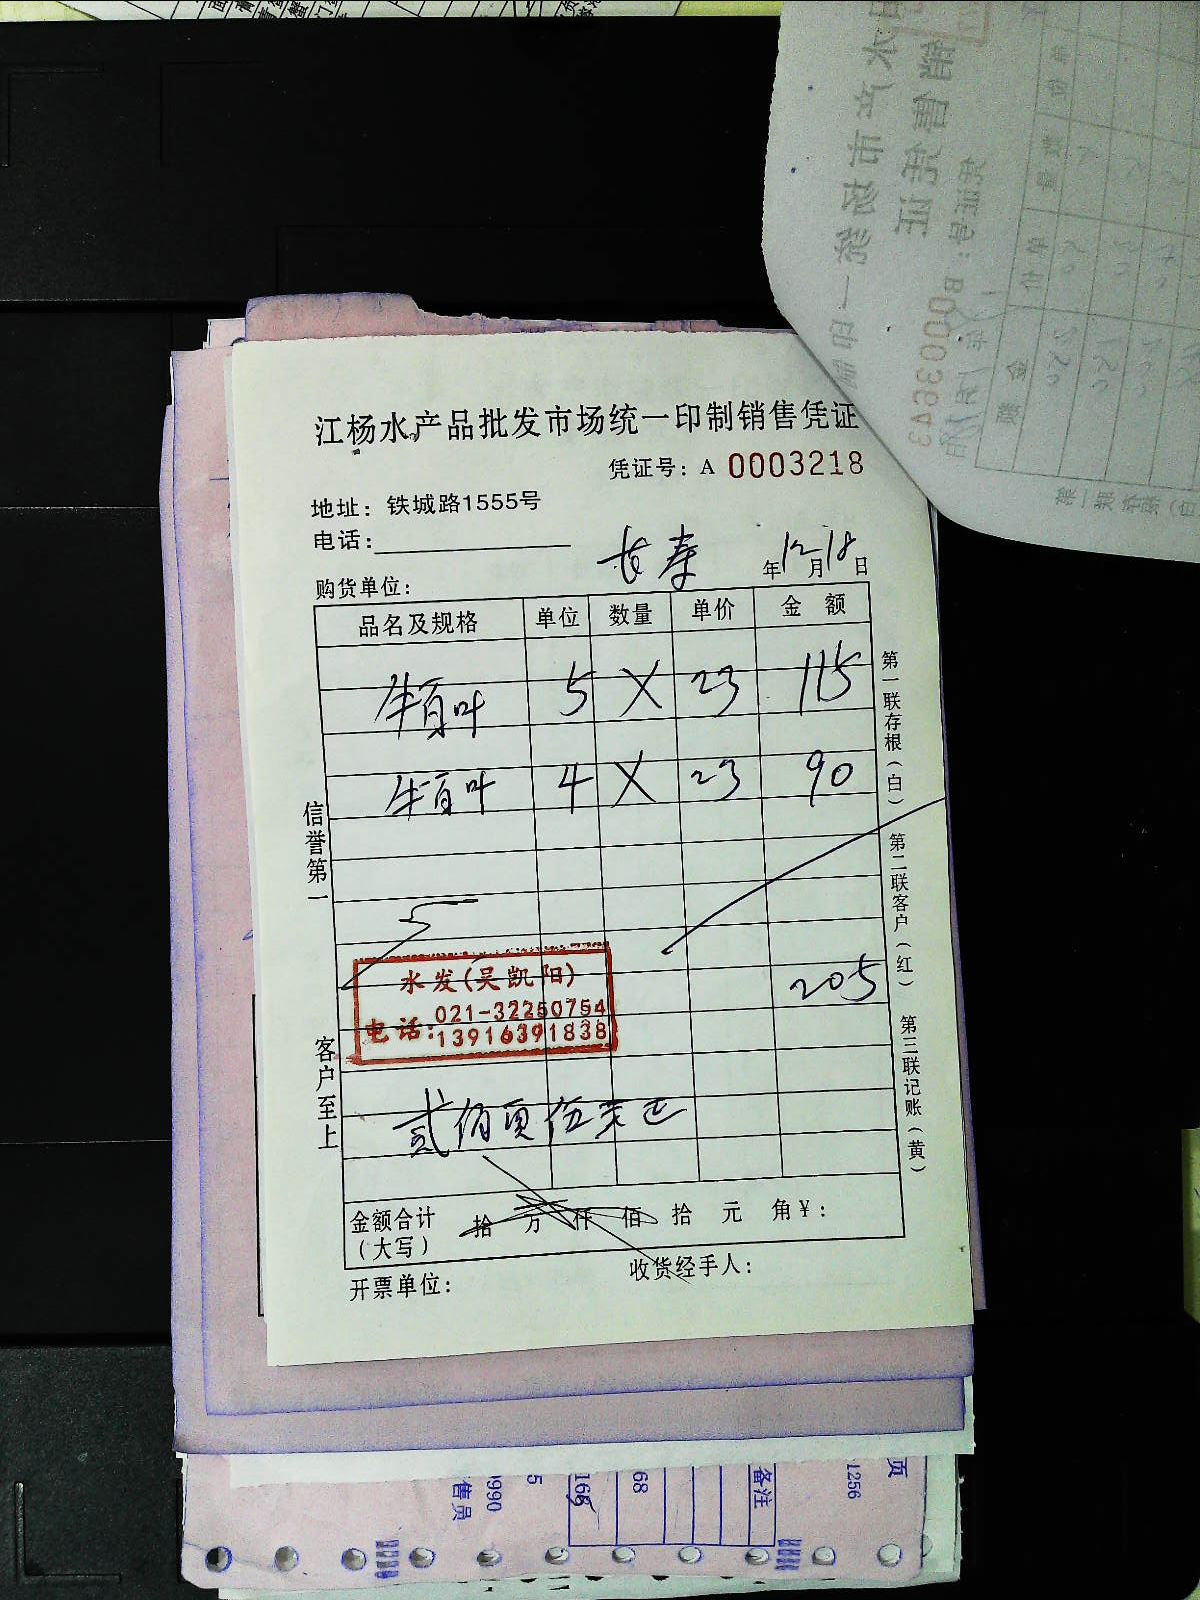 江杨水产品批发市场统一印制销售凭证
凭证号：A 0003218
地址：铁城路1555号
电话：
长寿 年12月18日
购货单位：
品名及规格 单位 数量 单价 金 额
牛百叶 5 X 23 115
牛百叶 4 X 23 90
205
水发(吴凯阳)
电话：021-32250754
13916391838
贰佰零伍元正
金额合计（大写） 拾 万 仟 佰 拾 元 角￥：
开票单位： 收货经手人：
信誉第一 客户至上
第一联存根（白） 第二联客户（红） 第三联记账（黄）
B0003643
备注
页
1256
68
168
5
0990
售员